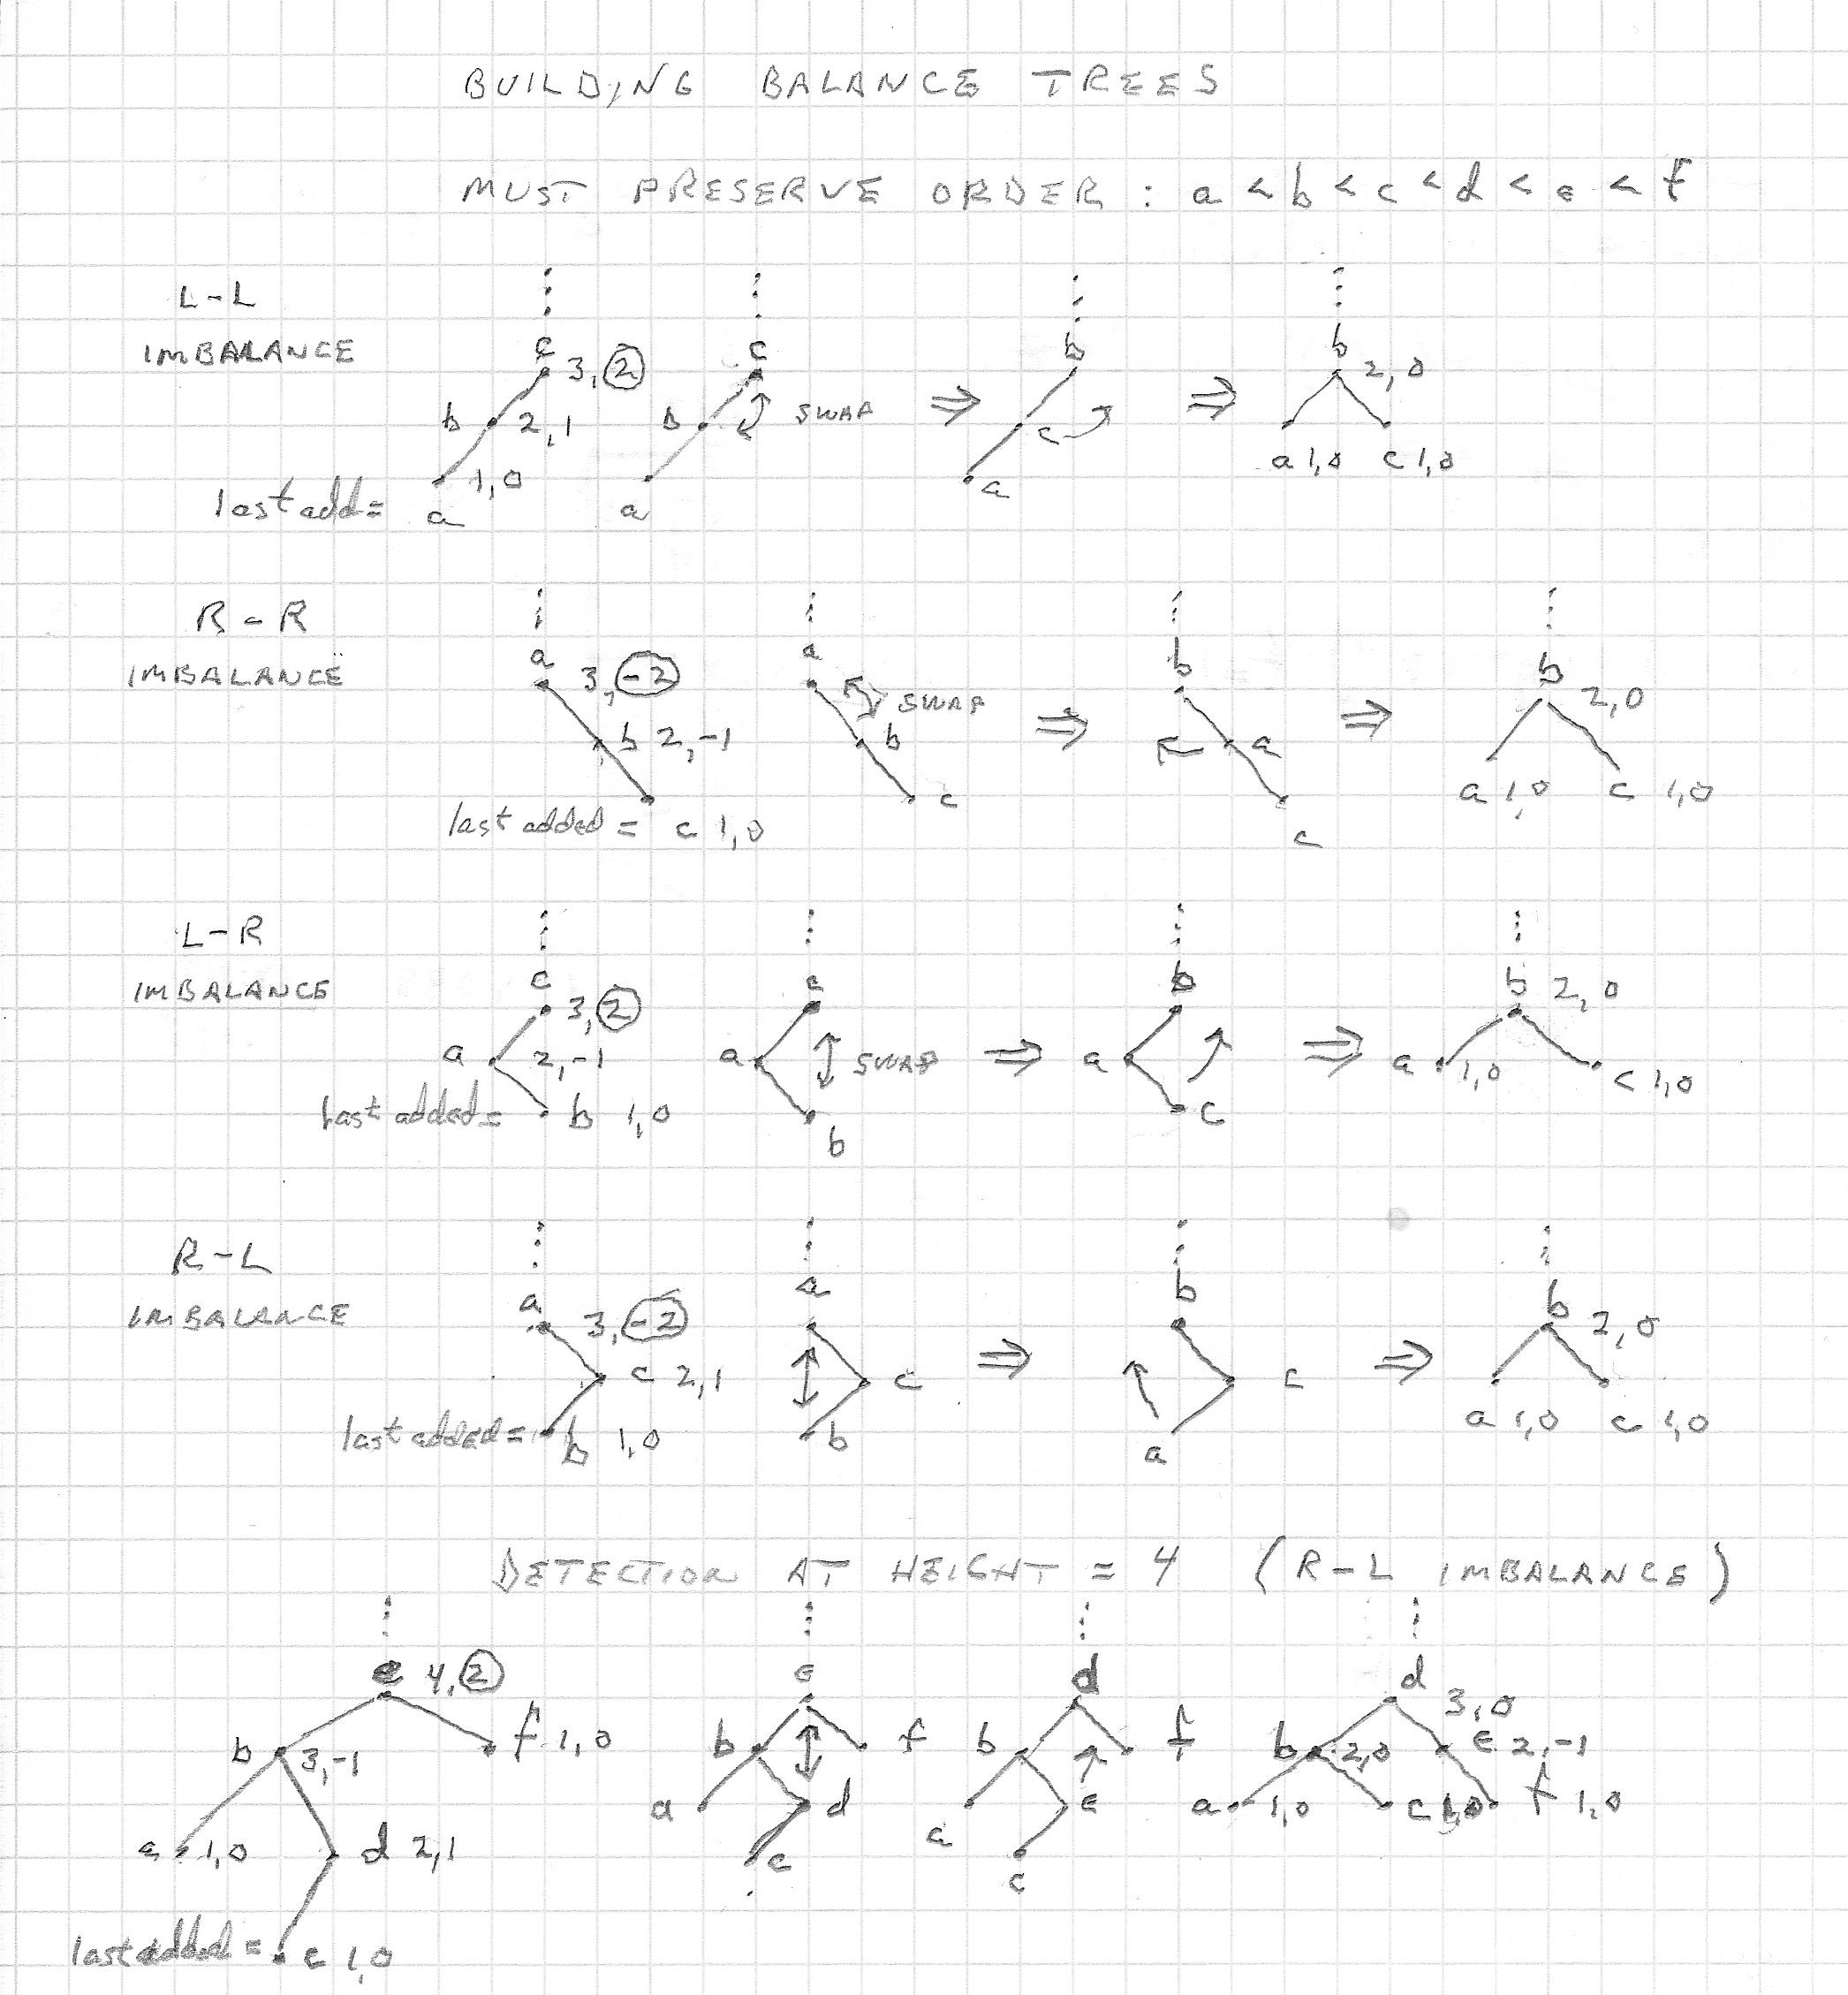 BUILDING BALANCE TREES
MUST PRESERVE ORDER : a < b < c < d < e < f
L-L
IMBALANCE
c 3, 2
b 2, 1
1, 0
last add =
a
c
b
SWAP
a
b
c
a
b
2, 0
a 1, 0 c 1, 0
R-R
IMBALANCE
a
3, -2
b 2, -1
last added = c 1, 0
a
SWAP
b
c
b
a
c
b
2, 0
a 1, 0 c 1, 0
L-R
IMBALANCE
c
3, 2
a 2, -1
last added = b 1, 0
c
a SWAP
b
b
a
c
b 2, 0
a 1, 0 c 1, 0
R-L
IMBALANCE
a
3, -2
c 2, 1
last added = b 1, 0
a
c
b
b
c
a
b
2, 0
a 1, 0 c 1, 0
DETECTION AT HEIGHT = 4 (R-L IMBALANCE)
e 4, 2
b 3, -1 f 1, 0
a 1, 0 d 2, 1
last added = c 1, 0
e
b f
a d
c
d
b f
a e
c
d
3, 0
b 2, 0 e 2, -1
a 1, 0 c 1, 0 f 1, 0